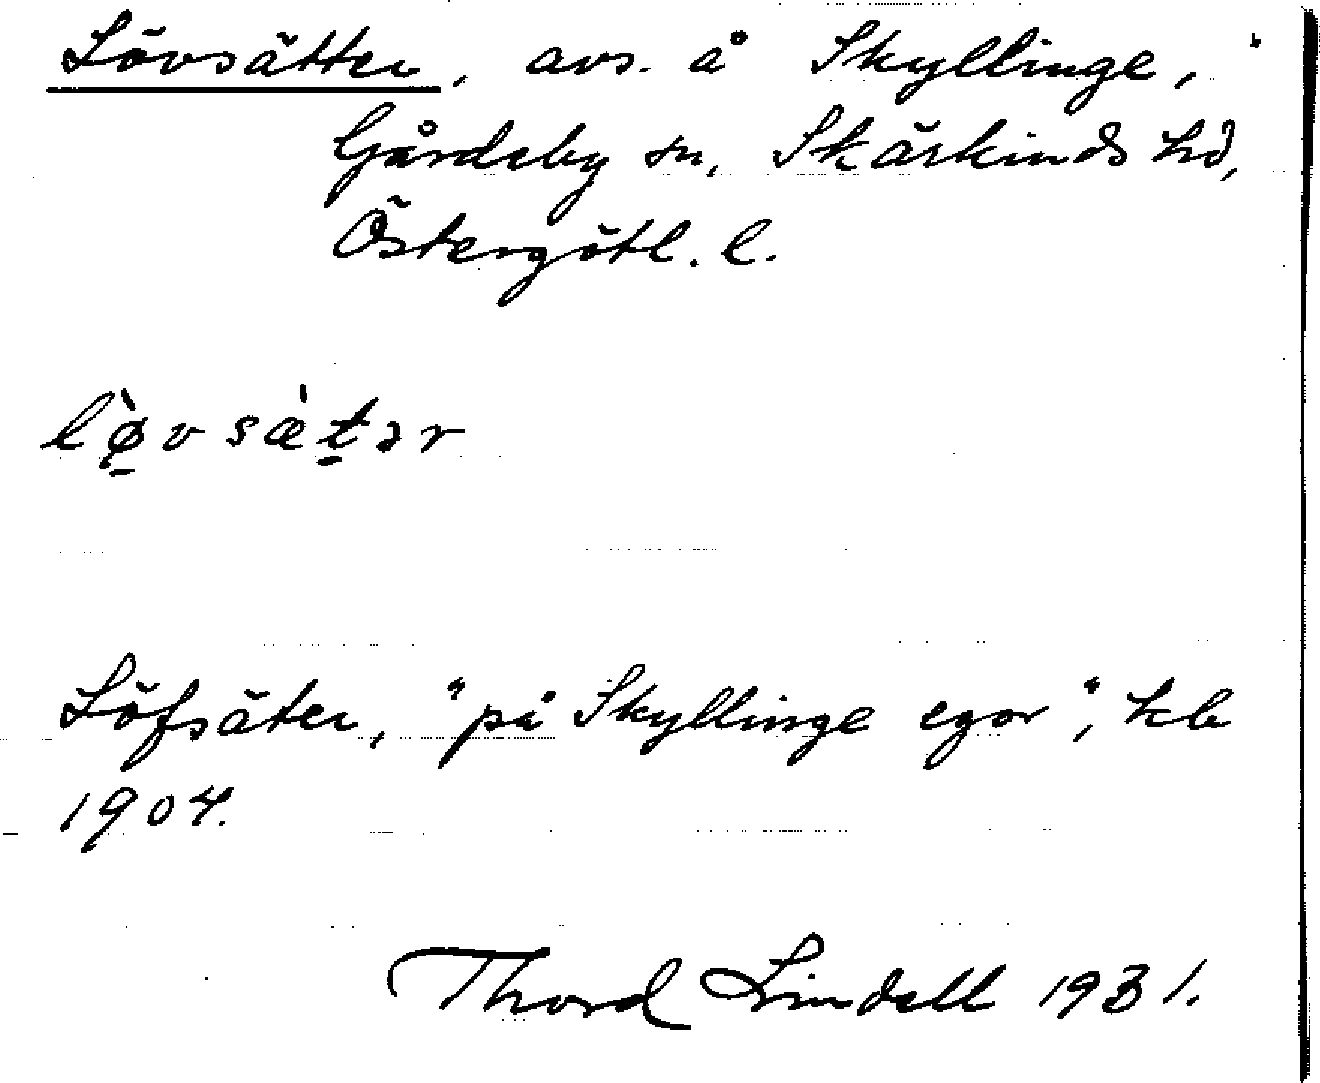 Lövsätter, avs. å Skyllinge, i
Gårdeby sn, Skärkinds hd,
Östergötl. l.
lø̱̀vsæ̀ṯər
Löfsäter, "på Skyllinge egor", kb
1904.
Thord Lindell 1931.